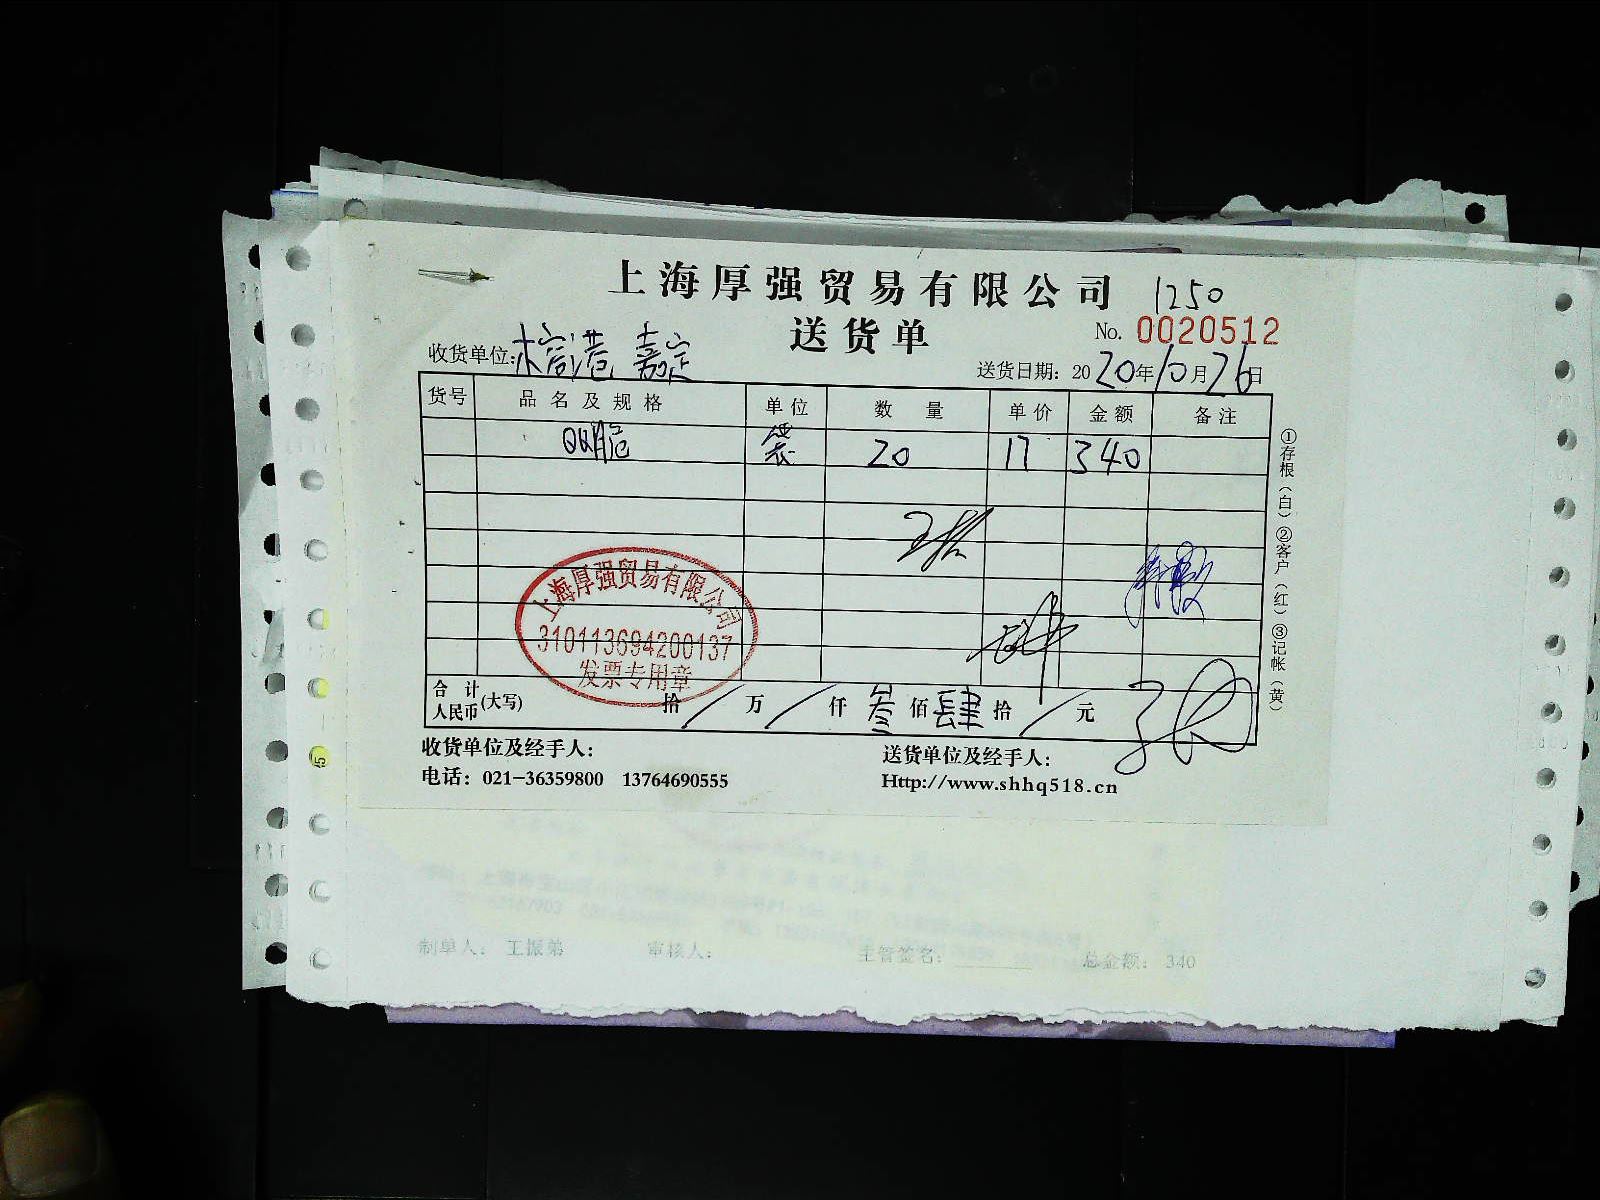 上海厚强贸易有限公司 1250
送货单 No. 0020512
收货单位: 嘉定 送货日期: 2020年10月26日
货号 品名及规格 单位 数量 单价 金额 备注
QQ脆 袋 20 17 340
①存根(白)②客户(红)③记帐(黄)
上海厚强贸易有限公司
310113694200137
发票专用章
合计人民币(大写) 拾/万/仟叁佰肆拾/元
收货单位及经手人: 送货单位及经手人:
电话: 021-36359800 13764690555 Http://www.shhq518.cn
制单人: 王振弟 审核人: 主管签名: 总金额: 340